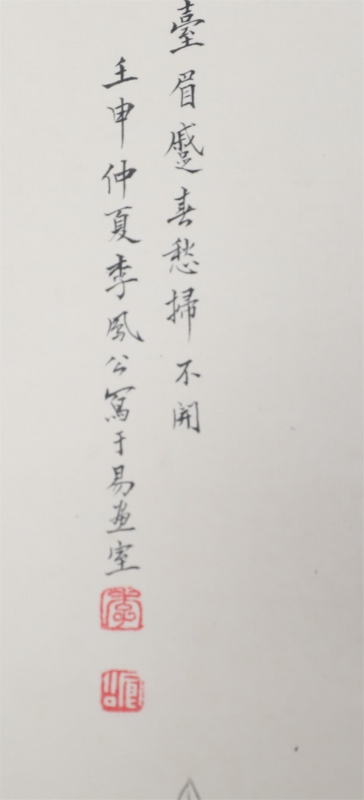 臺眉蹙春愁掃不開
壬申仲夏李鳳公寫于易畫室
李